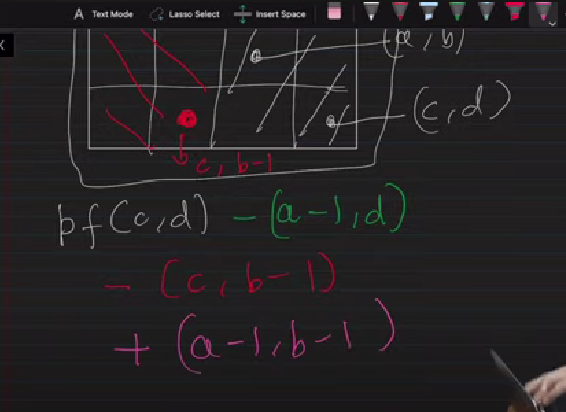 Text Mode Lasso Select Insert Space
(a, b)
(c, d)
c, b-1
pf(c, d) - (a-1, d)
- (c, b-1)
+ (a-1, b-1)